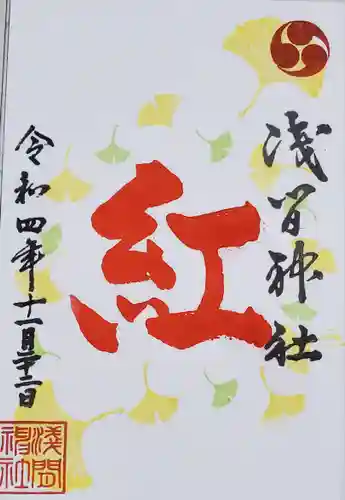 浅间神社
紅
令和四年十一月二十二日
浅間神社